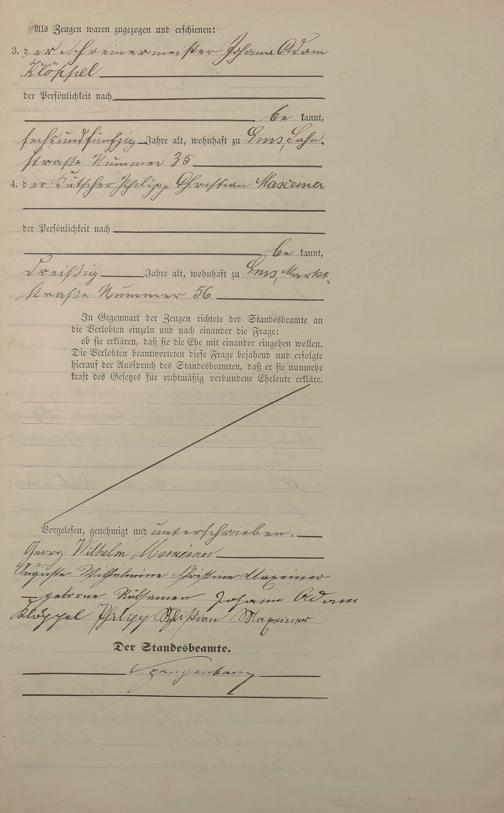 Als Zeugen waren zugezogen und erschienen:
3. der Schreinermeister Johann Adam
Klöppel
der Persönlichkeit nach
be kannt,
sechsundfünfzig Jahre alt, wohnhaft zu Ems, Lahn-
straße Nummer 35
4. der Kutscher Philipp Christian Maxeiner
der Persönlichkeit nach
be kannt,
dreißig Jahre alt, wohnhaft zu Ems, Markt-
straße Nummer 56
In Gegenwart der Zeugen richtete der Standesbeamte an
die Verlobten einzeln und nach einander die Frage:
ob sie erklären, daß sie die Ehe mit einander eingehen wollen.
Die Verlobten beantworteten diese Frage bejahend und erfolgte
hierauf der Ausspruch des Standesbeamten, daß er sie nunmehr
kraft des Gesetzes für rechtmäßig verbundene Eheleute erkläre.
Vorgelesen, genehmigt und unterschrieben.
Georg Wilhelm Maxeiner
Auguste Wilhelmine Christine Maxeiner
geborne Johann Adam
Klöppel Philipp Christian Maxeiner
Der Standesbeamte.
Spangenberg